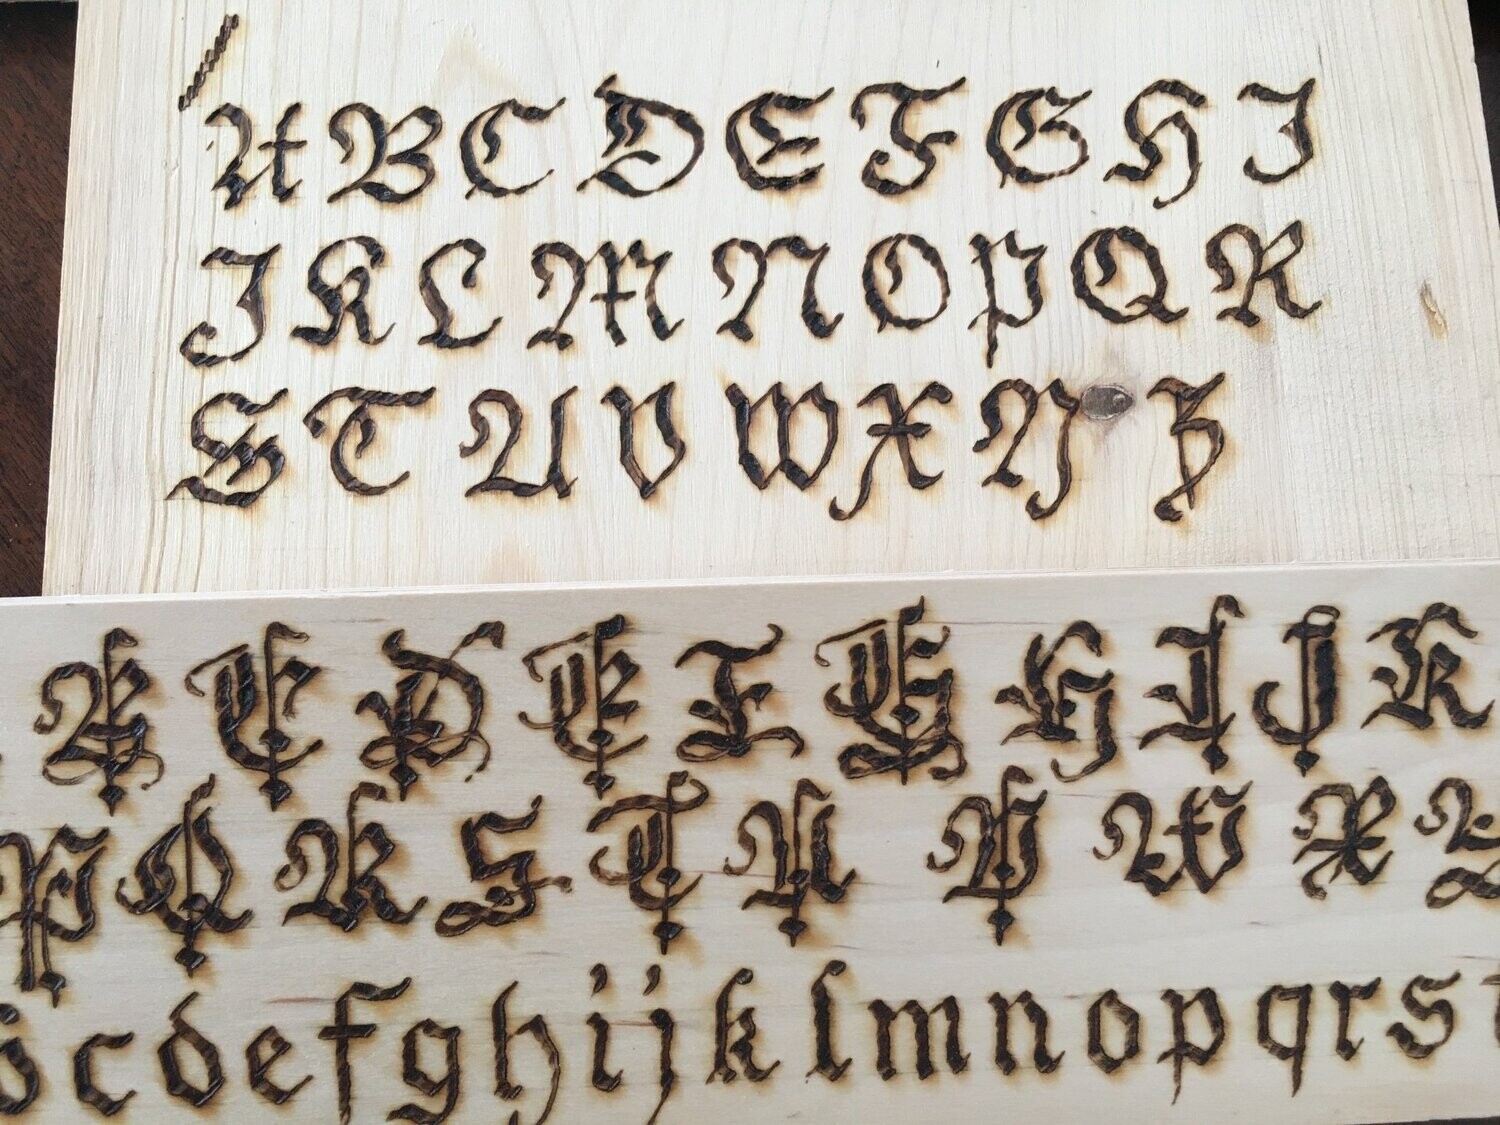 A B C D E F G H I
J K L M N O P Q R
S T U V W X Y Z
A C D E F G H I J K
P Q R S T U V W X
c d e f g h i j k l m n o p q r s